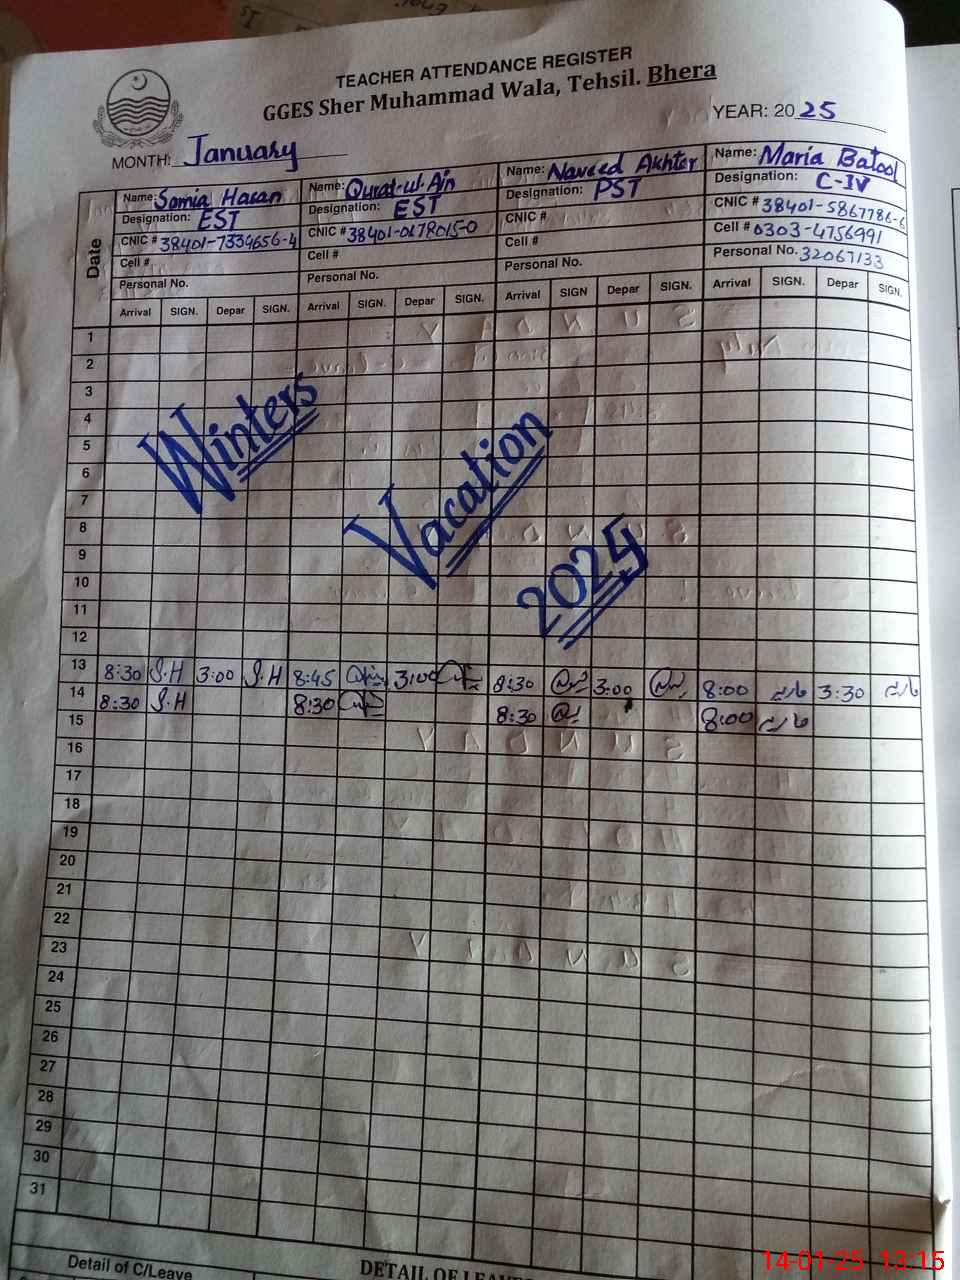 TEACHER ATTENDANCE REGISTER
GGES Sher Muhammad Wala, Tehsil. Bhera
YEAR: 2025
MONTH: January
Date
Name: Somia Hasan Name: Qurat-ul-Ain Name: Naveed Akhter Name: Maria Batool
Designation: EST Designation: EST Designation: PST Designation: C-IV
CNIC # 38401-7334656-4 CNIC # 38401-0178015-0 CNIC # CNIC # 38401-5867786-6
Cell # Cell # Cell # Cell # 0303-4756991
Personal No. Personal No. Personal No. Personal No. 32067133
Arrival SIGN. Depar SIGN. Arrival SIGN. Depar SIGN. Arrival SIGN Depar SIGN. Arrival SIGN. Depar SIGN.
1
2
3
4
5
6
7
8
9
10
11
12
Winters
Vacation
2025
13 8:30 S.H 3:00 S.H 8:45 3:00 8:30 3:00 8:00 3:30
14 8:30 S.H 8:30 8:30 8:00
15
16
17
18
19
20
21
22
23
24
25
26
27
28
29
30
31
Detail of C/Leave
DETAIL OF LEAVE
14-01-25 13:15